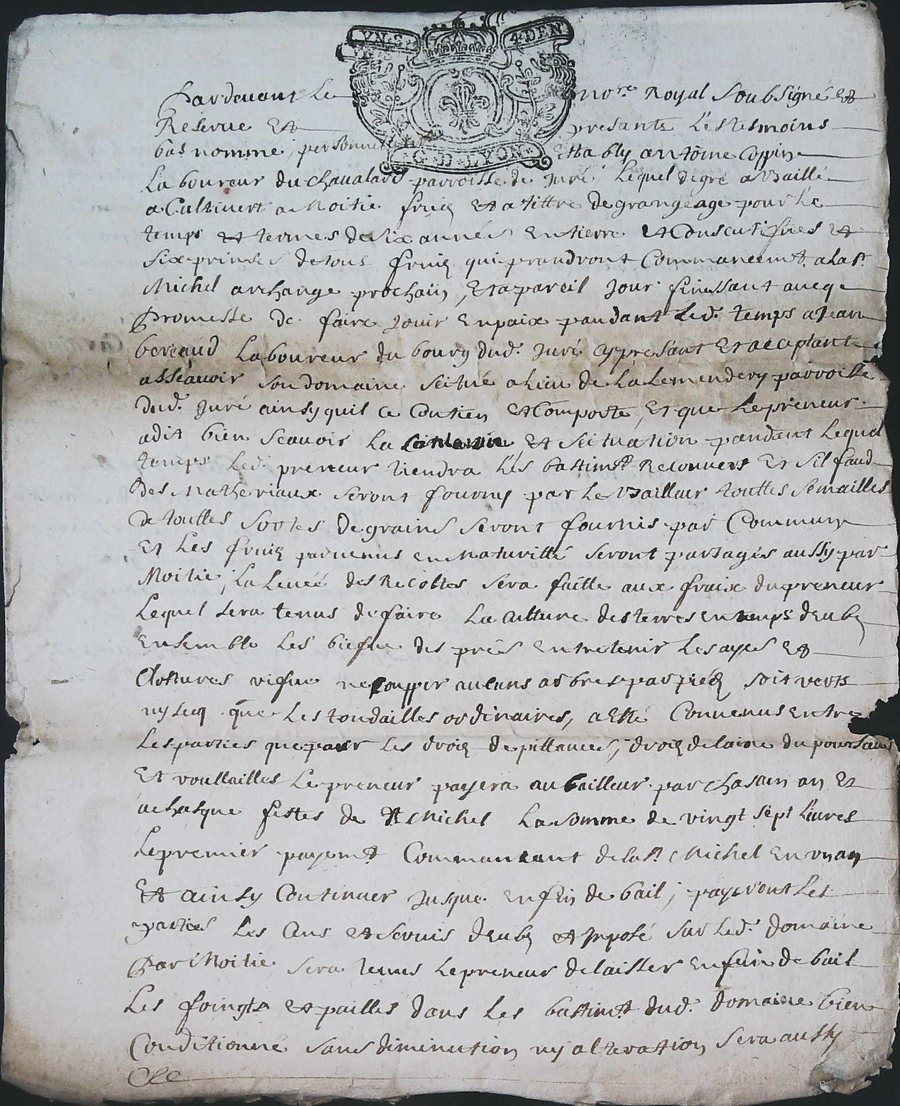 VN.S. 4DEN
G.D.LYON
Pardevant le no.re Royal Soubsigné et
Reservé et presante les tesmoins
bas nommé, personnellement estably antoine Coppin
Laboureur du Chavalard parroisse de Juré Lequel degré a baillé
a Cultiver a Moitie fruiz et a tittre de grangeage pour le
temps et termes de six années Entierre et Consecutifves et
six prinses de tous fruiz qui prandront Commancemt. a la st.
Michel archange prochain, et a pareil Jour finissant aveq
Promesse de faire Jouir En paix pandant led. temps a Jean
beraud Laboureur du bourg dud. Juré cy presant et acceptante
asseavoir son domaine scitué a lieu de la Lemendery parroisse
dud. Juré ainsy quil ce Contien et Composte, Et que le preneur
a dit bien scavoir la et scituation pandant lequel
temps led. preneur tiendra les bastimt. Recouvers et sil faud
des Matheriaux seront fournis par le bailleur touttes semailles
de touttes sortes de grains seront fournis par Commun
Et les fruiz parvenus en maturitté seront partagés aussy par
Moitié, la levée des Recoltes sera faitte aux fraix du preneur
Lequel sera tenus de faire la Culture des terres en temps deubz
Ensemble les biefve des prés Entretenir les ayes et
Clostures vifve ne Coupper aucuns arbres par pied soit verts
ny secq que les tondailles ordinaires, a esté Convenus entre
les parties que pour les droiz de pittances, droiz de laine du pourceau
Et voullailles le preneur payera au bailleur par chascun an et
a chasque festes de st Michel la somme de vingt sept livres
le premier payemt. Commancant de la st. Michel En un an
Et ainsy Continuer Jusque en fin de bail, payeront les
parties les Cens et servis deubz et Imposé sur led. domaine
Par Moitie, sera tenus le preneur de laisser En fin de bail
les foingts et pailles dans les bastimt. dud. domaine bien
Conditionné sans diminution ny alteration sera aussy